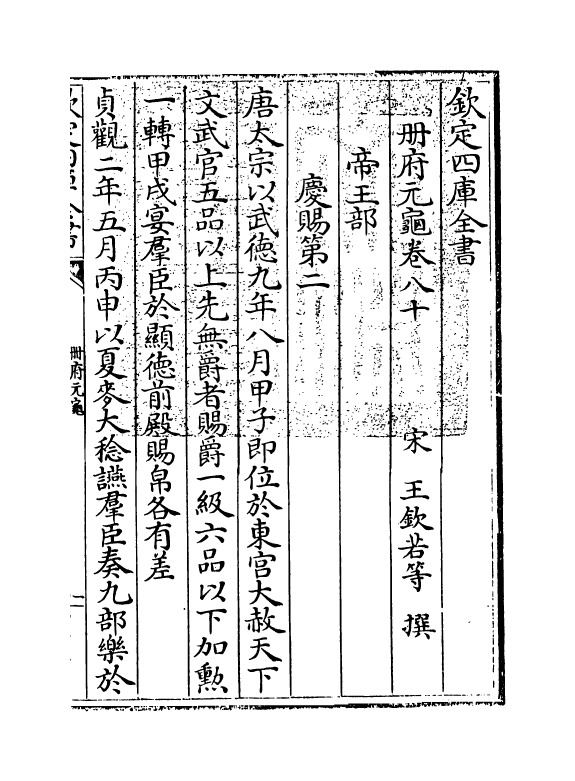 欽定四庫全書
册府元龜卷八十
宋 王欽若等 撰
帝王部
慶賜第二
唐太宗以武德九年八月甲子即位於東宫大赦天下
文武官五品以上先無爵者賜爵一級六品以下加勲
一轉甲戌宴羣臣於顯德前殿賜帛各有差
貞觀二年五月丙申以夏麥大稔讌羣臣奏九部樂於
册府元龜